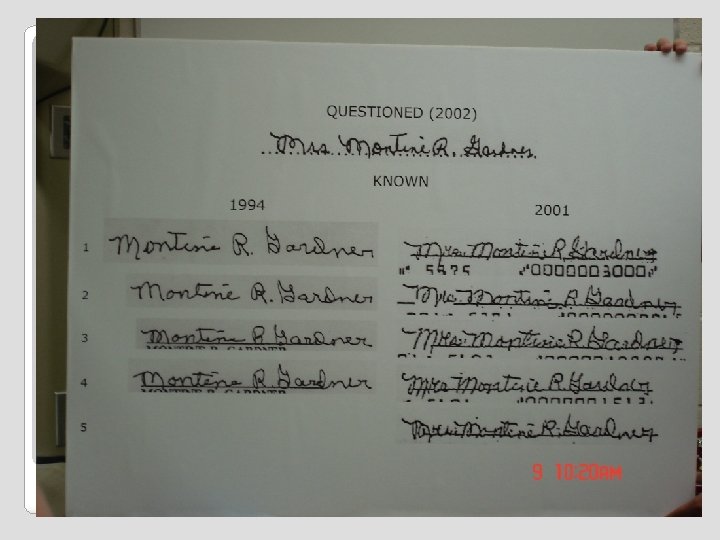 QUESTIONED (2002)
Mrs Montine R. Gardner
KNOWN
1994 2001
1 Montine R. Gardner Mrs. Montine R. Gardner
5575 "0000003000"
2 Montine R. Gardner Mrs. Montine R. Gardner
3 Montine R Gardner Mrs. Montine R Gardner
MONTINE R GARDNER
4 Montine R Gardner Mrs Montine R Gardner
MONTINE R GARDNER "0000001513
5 Mrs. Montine R. Gardner
9 10:20AM